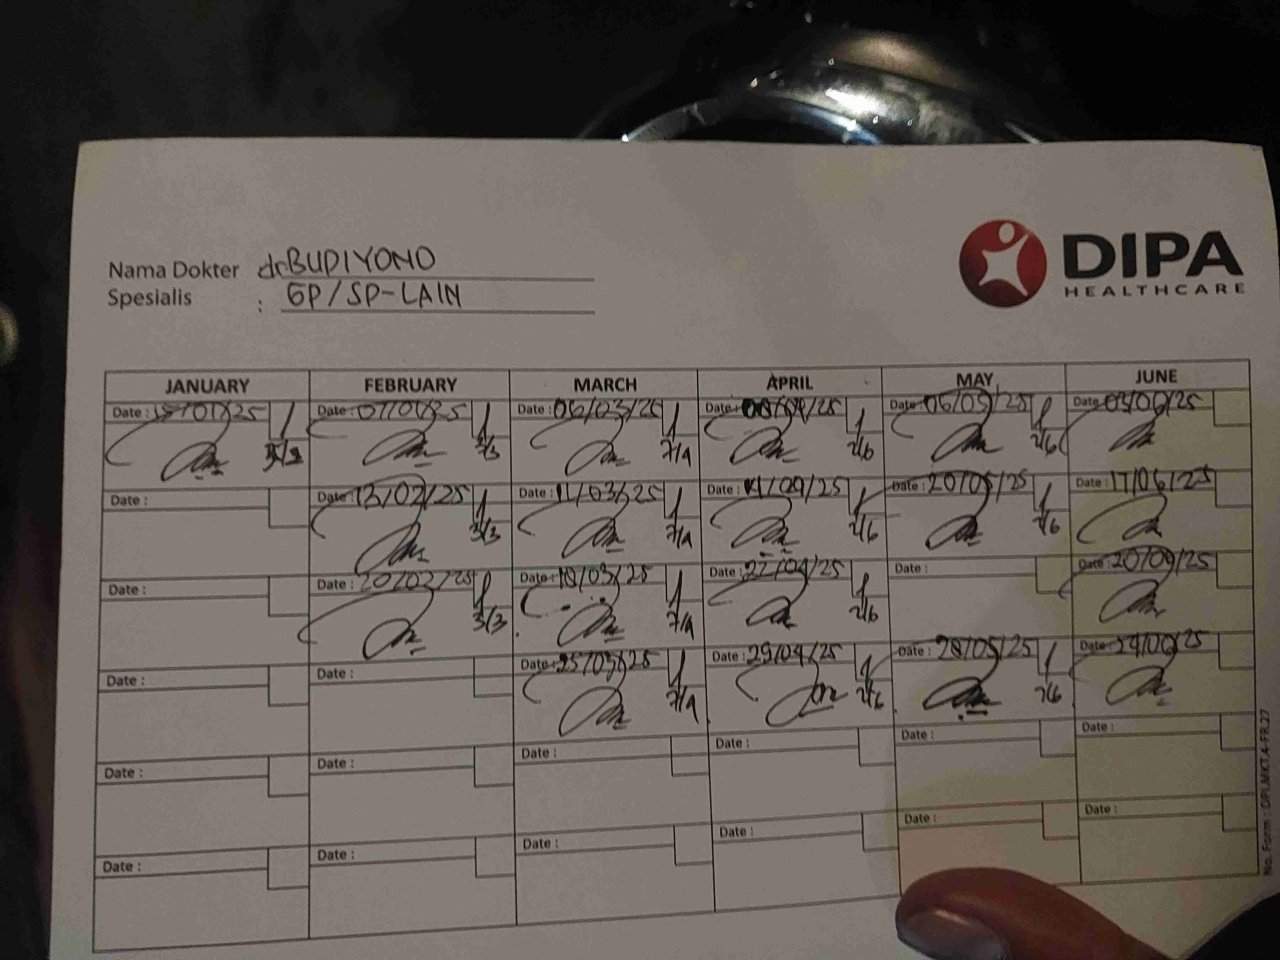 DIPA
HEALTHCARE
Nama Dokter dr BUDIYONO
Spesialis : GP/SP-LAIN
JANUARY FEBRUARY MARCH APRIL MAY JUNE
Date : 15/01/25 Date : 07/02/25 Date : 06/03/25 Date : 08/04/25 Date : 06/05/25 Date : 03/06/25
3/3 7/4 2/6 2/6
Date : Date : 13/02/25 Date : 11/03/25 Date : /04/25 Date : 20/05/25 Date : 17/06/25
3/3 7/4 2/6 2/6
Date : Date : 20/02/25 Date : 18/03/25 Date : 22/04/25 Date : Date : 20/06/25
3/3 7/4 2/6
Date : Date : Date : 25/03/25 Date : 29/04/25 Date : 28/05/25 Date : 24/06/25
7/4 2/6 2/6
Date : Date : Date : Date : Date : Date :
Date : Date : Date : Date : Date : Date :
No. Form : DPI.MKT.4-FR.27